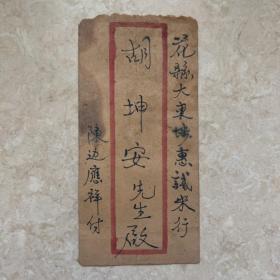 花縣大東坡惠誠米行
胡坤安先生啟
陳边應祥付